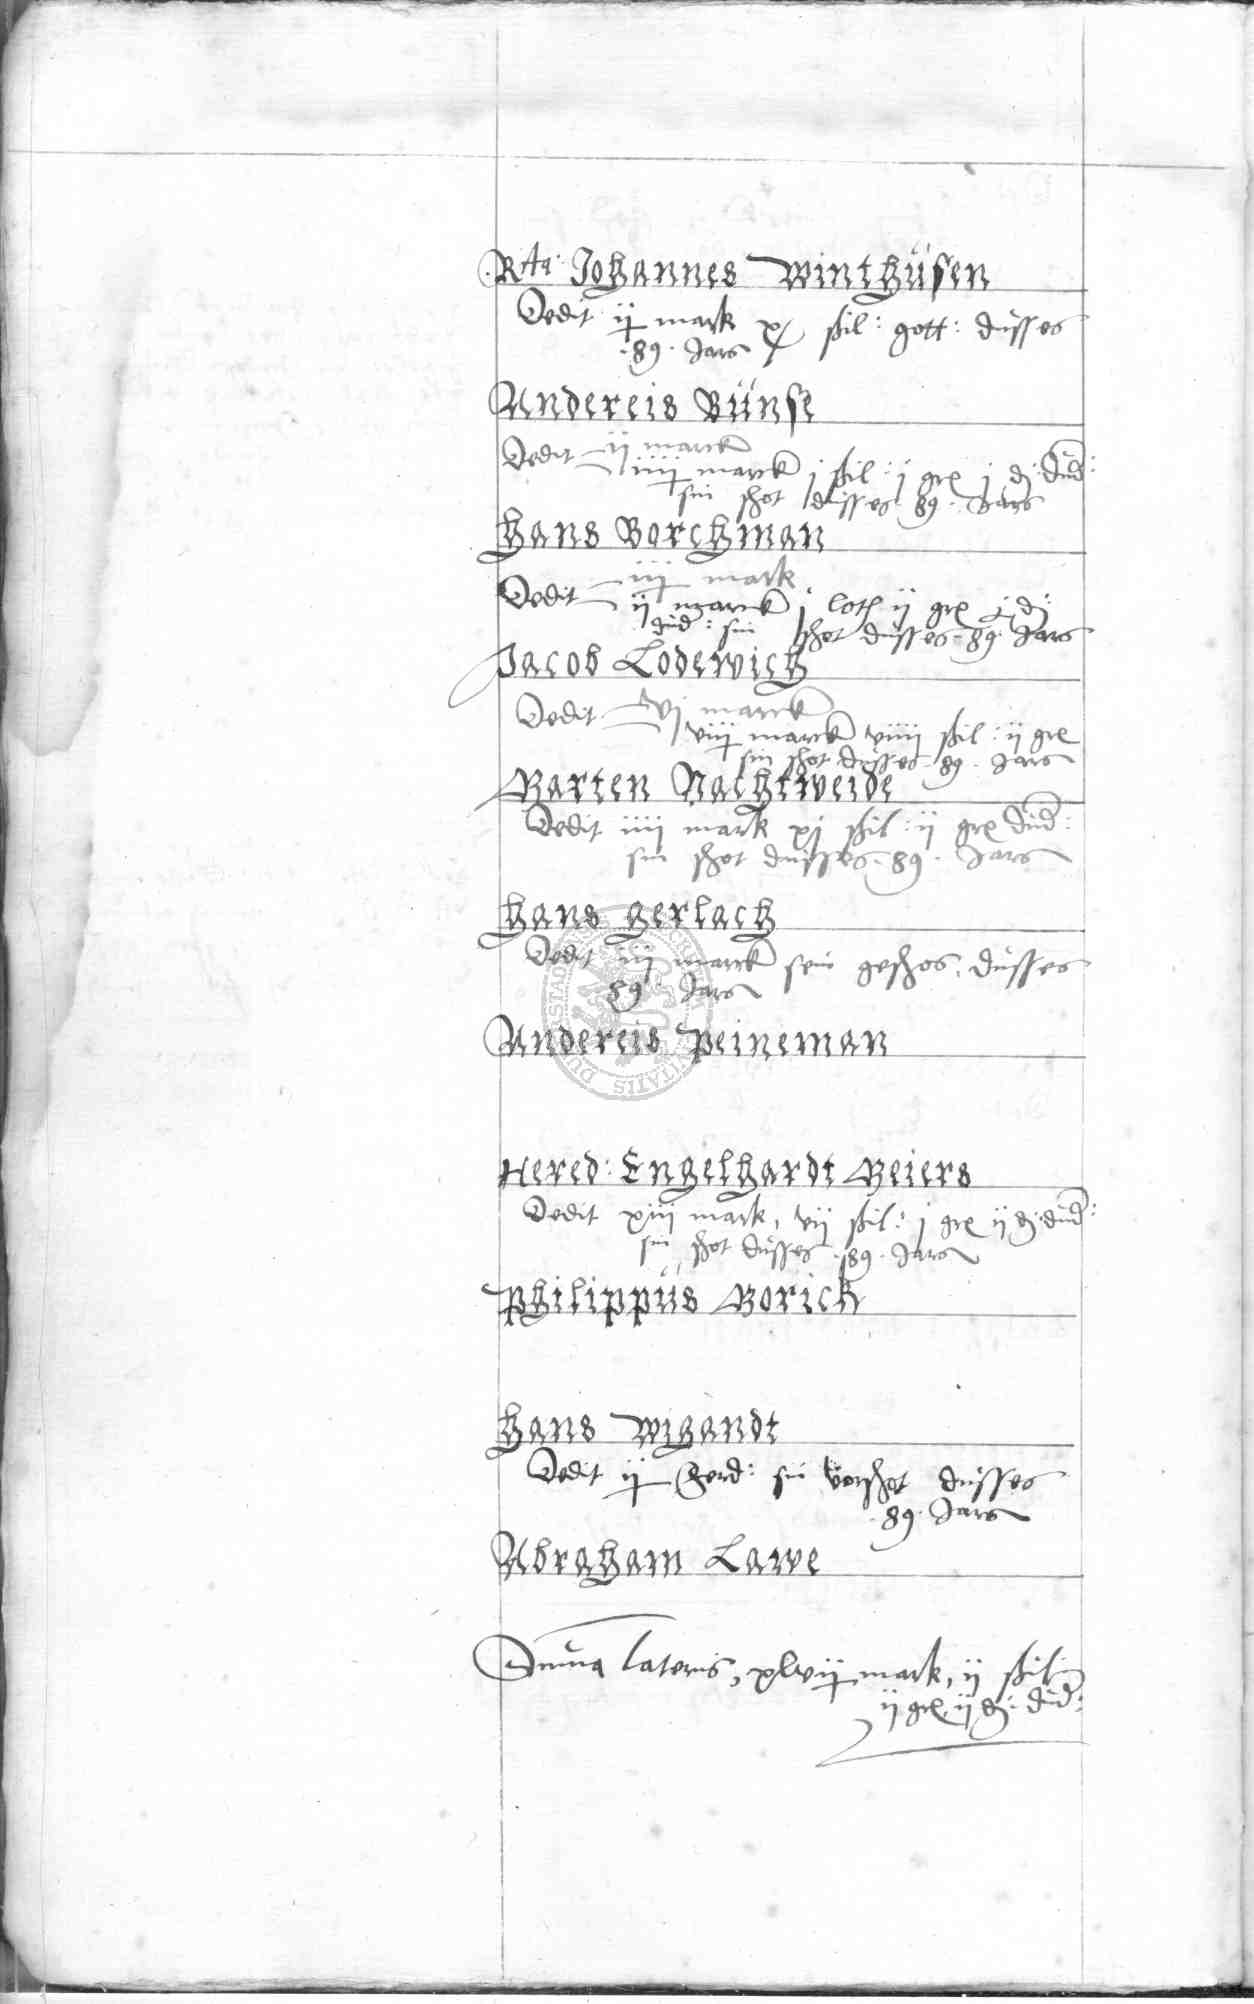 Rta: Johannes Winthüsen
Dedit ij mark xj ßil: gott: düsses
.89. Jars
Andereis Bünse
Dedit ij marck
iiij marck j ßil: j gre j ₰: düd:
sin shot düsses .89. Jars
Hans Borchman
Dedit iij mark
ij marck j loth ij gre j ₰:
düd: sin shot düsses .89. Jars
Jacob Lodewich
Dedit vj marck
viij marck viiij ßil: ij gre
sin shot düsses .89. Jars
Barten Nachtweide
Dedit iiij mark xj ßil: ij gre düd:
sin shot düsses .89. Jars
Hans Gerlach
Dedit iij marck sein geshos. düsses
89. Jars
Andereis Peineman
Hered: Engelhardt Beiers
Dedit xiii mark, vij ßil: j gre ij ₰: düd:
sin shot düsses .89. Jars
Philippüs Borick
Hans Wigandt
Dedit ij ferd: sin vorshot düsses
.89. Jars
Abraham Lawe
Suma lateris, xlvij mark, ij ßil:
ij gre, ij ₰: düd: